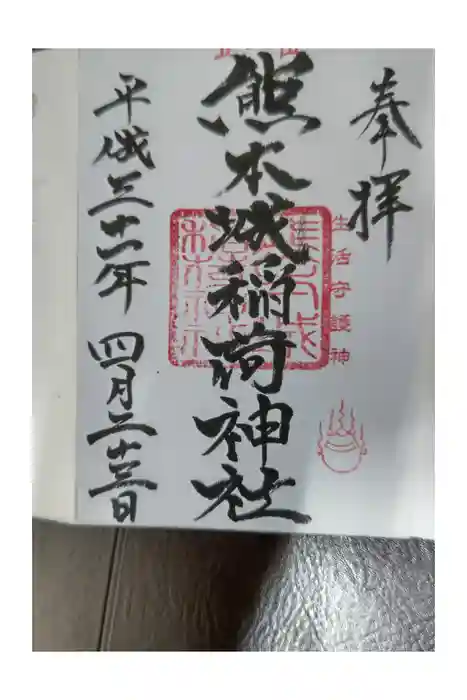 奉拝
生活守護神
熊本城稲荷神社
平成三十一年 四月二十三日